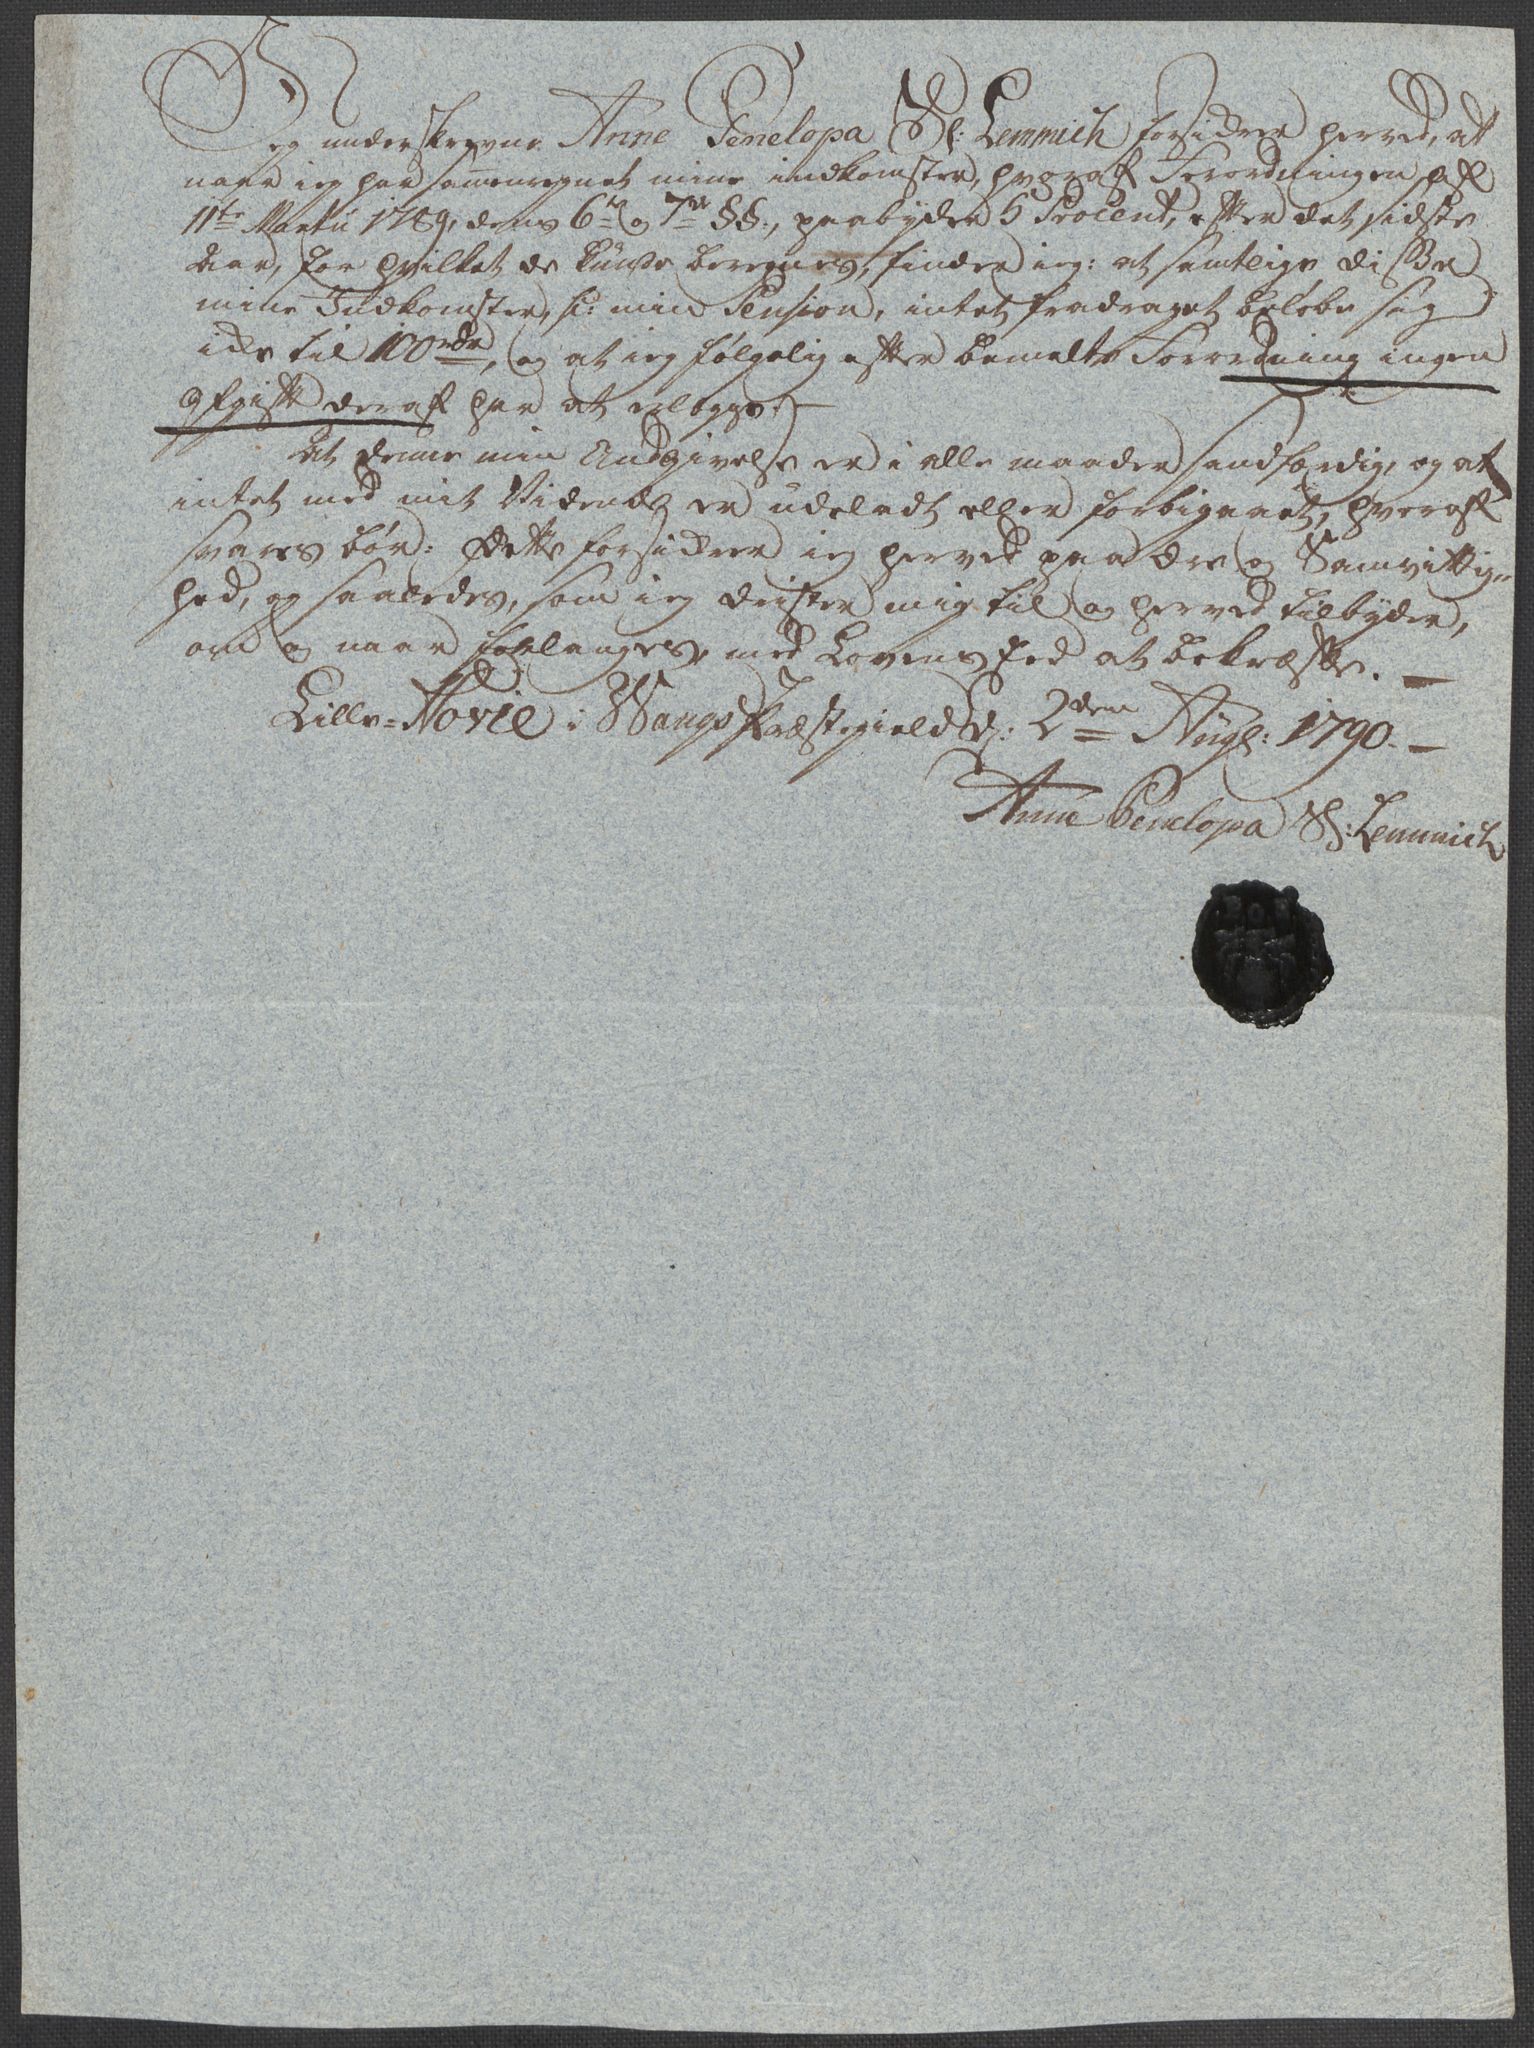 Jeg underskrevne Anne Penelopa Sl: Lemmich forsikrer herved, at
naar ieg har sam̄enregnet mine indkomster, hvoraf Forordningen af
11te Martii 1789, dens 6te og 7de §§., paabyder 5 Procent, efter det sidste
Aar, for hvilket de kunde beregnes, finder ieg: at samtlige di𝑠se
mine Indkomster, s: min Pension, intet fradraget beløbe sig
ikke til 100rdr, og at ieg følgelig efter bemelte Forordning ingen
Afgift deraf har at erlægge. —
At denne min Andgivelse er i alle maader sandfærdig, og at
intet med mit Vidende er udeladt eller forbigaaet, hvoraf
svares bør: Dette forsikrer ieg herved paa Ære og Samvittig-
hed, og saaledes, som ieg drister mig til og herved tilbyder,
om og naar forlanges, med Lovens Eed at bekræfte. —
Lille-Hovie i Wangs Præstegield d: 2den Aug: 1790. —
Anne Penelopa Sl: Lemmich